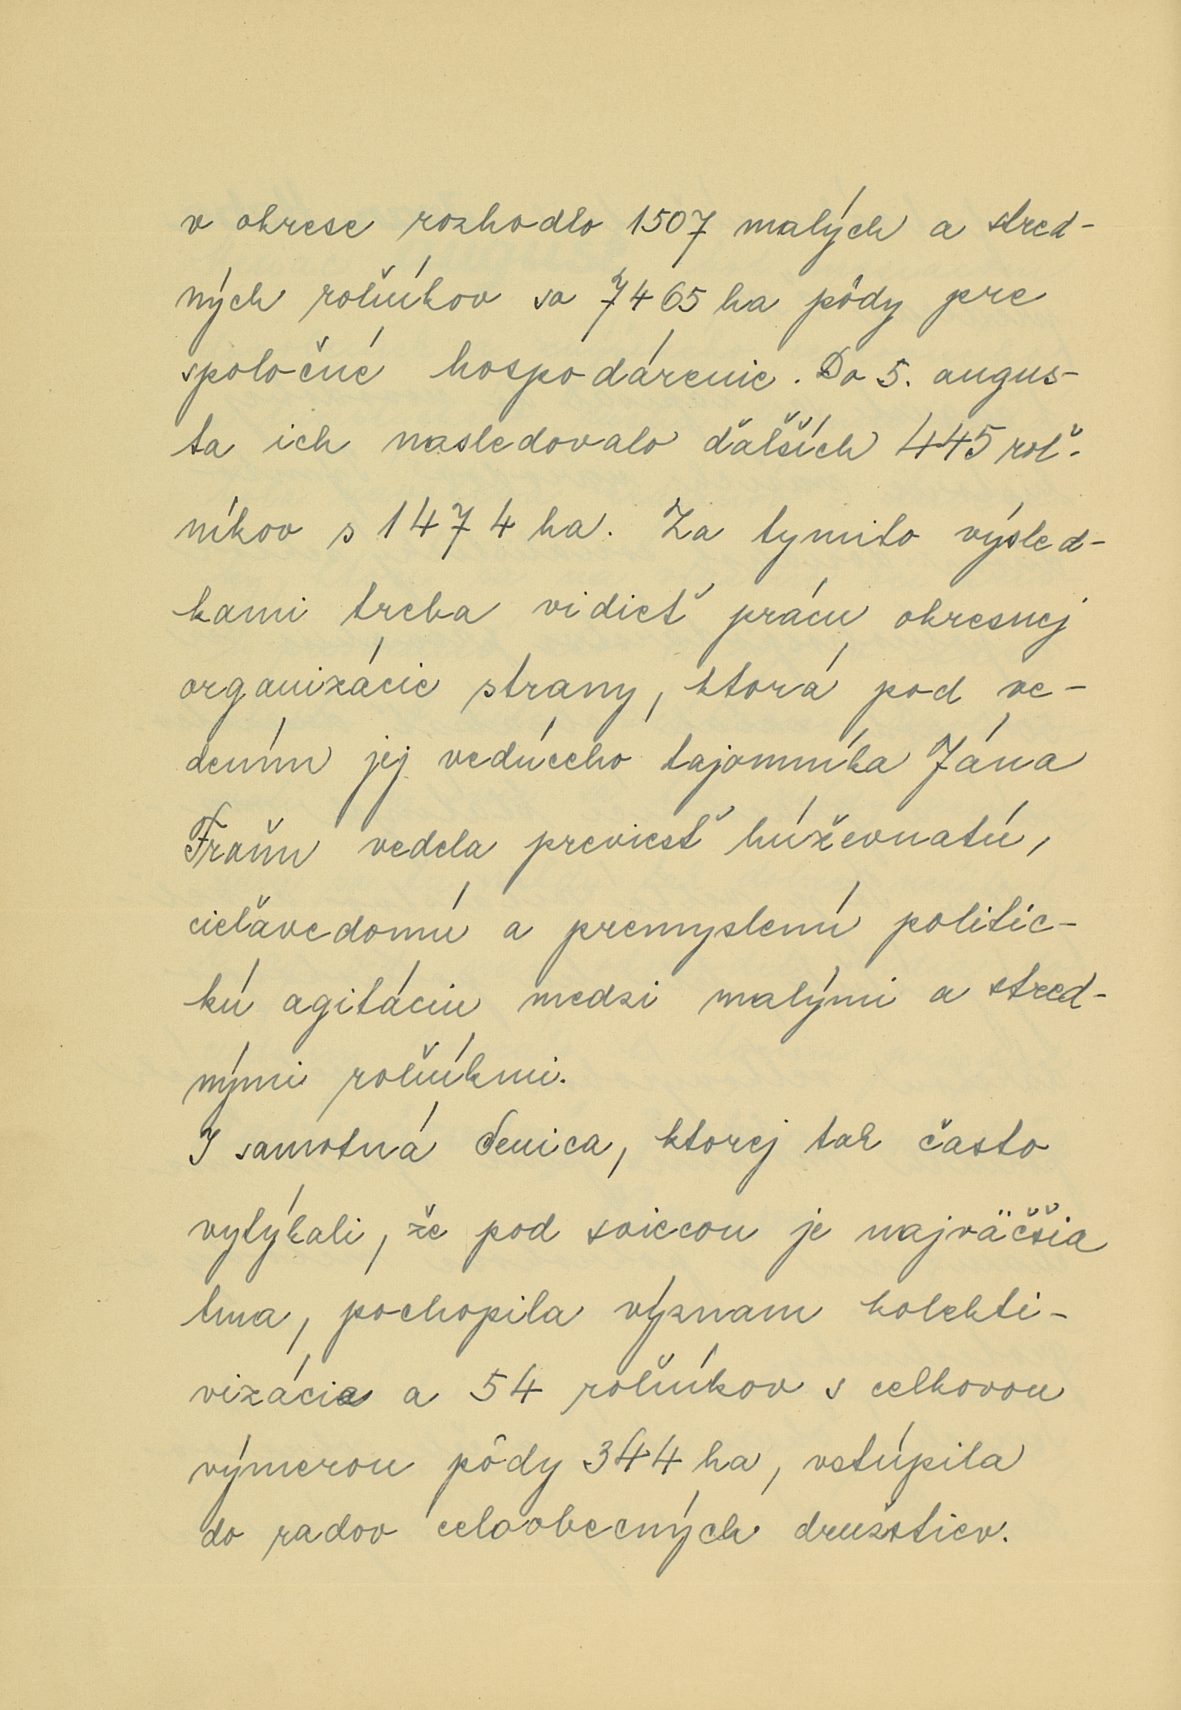 v okrese rozhodlo 1507 malých a stred-
ných roľníkov so 7465 ha pôdy pre
spoločné hospodárenie. Do 5. augus-
ta ich nasledovalo ďaľších 445 roľ-
níkov s 1474 ha. Za tymito výsled-
kami treba vidieť prácu okresnej
organizácie strany, ktorá pod ve-
dením jej vedúceho tajomníka Jána
Fraňu vedela previesť húževnatú,
cieľavedomú a premyslenú politic-
kú agitáciu medzi malými a stred-
nými roľníkmi.
I samotná Senica, ktorej tak často
vytýkali, že pod sviecou je najväčšia
tma, pochopila význam kolekti-
vizácie a 54 roľníkov s celkovou
výmerou pôdy 344 ha, vstúpila
do radov celoobecných družstiev.